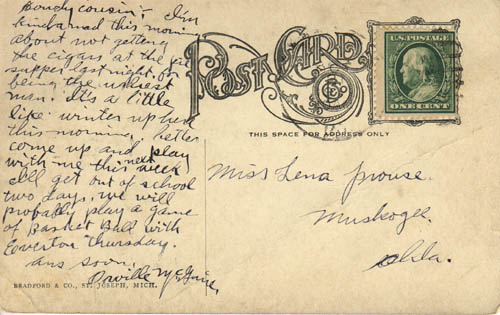 Howdy cousin:- I'm
kinda mad this mornin
about not getting
the cigars at the pie
supper last night for
being the ugliest
man. It's a little
like winter up here
this morning. better
come up and play
with me this next week
I'll get out of school
two days. we will
probably play a game
of Basket Ball with
Everton Thursday.
ans soon,
Orville McGuire,
BRADFORD & CO., ST. JOSEPH, MICH.
POST CARD
THIS SPACE FOR ADDRESS ONLY
U.S. POSTAGE
ONE CENT
Miss Lena Prouse.
Muskogee.
Okla.